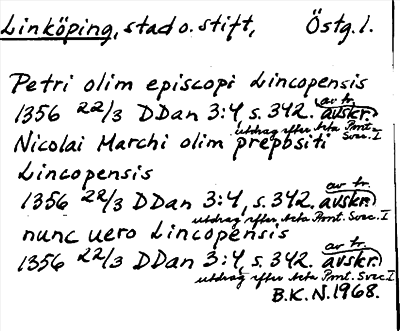 Linköping, stad o. stift, Östg. l.
Petri olim episcopi Lincopensis
1356 22/3 DDan 3:4, s. 342. av tr. (avskr.)
utdrag efter Acta Pont. Svec. I
Nicolai Marchi olim prepositi
Lincopensis
1356 22/3 DDan 3:4, s. 342. av tr. (avskr.)
utdrag efter Acta Pont. Svec. I
nunc uero Lincopensis
1356 22/3 DDan 3:4, s. 342. av tr. (avskr.)
utdrag efter Acta Pont. Svec. I
B.K.N. 1968.